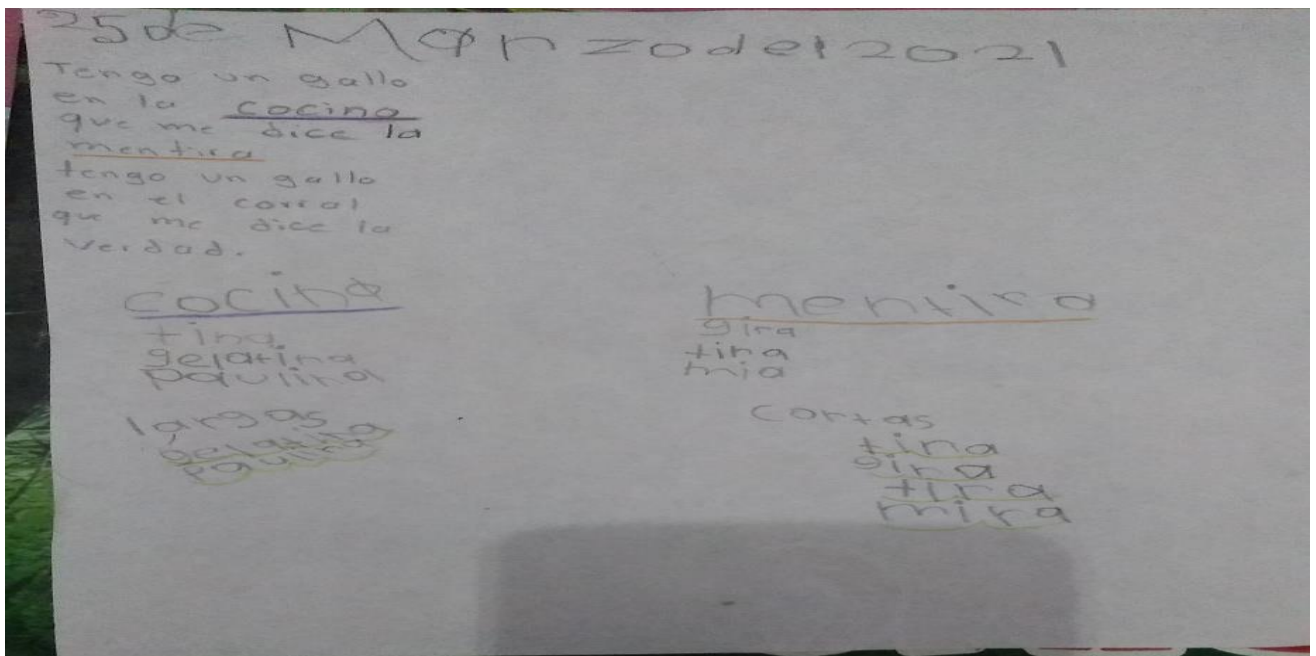 25 de Manzo del 2021
Tengo un gallo
en la cocina
que me dice la
mentira
tengo un gallo
en el corral
que me dice la
verdad.
cocina
tina
gelatina
paulina
largas
gelatina
paulina
mentira
gira
tira
mia
cortas
tina
gira
tira
mira